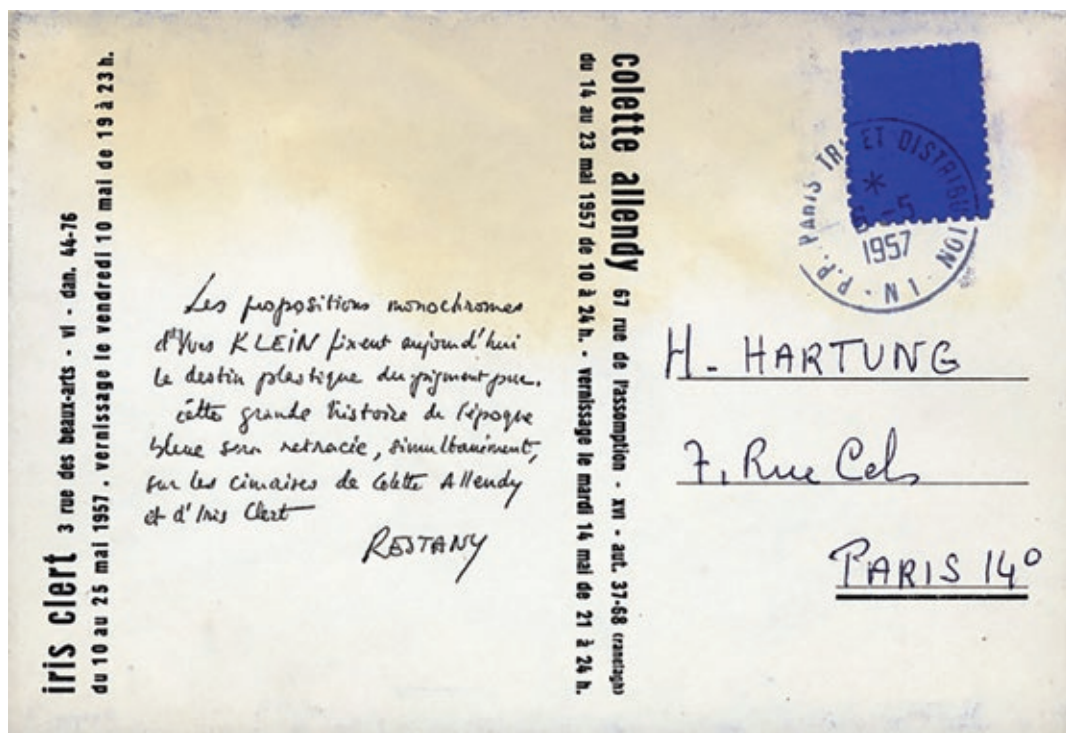 iris clert 3 rue des beaux-arts - vi - dan. 44-76
du 10 au 25 mai 1957. vernissage le vendredi 10 mai de 19 à 23 h.
Les propositions monochromes
d'Yves KLEIN fixent aujourd'hui
le destin plastique du pigment pur.
cette grande histoire de l'époque
bleue sera retracée, simultanément,
sur les cimaises de Colette Allendy
et d'Iris Clert
RESTANY
colette allendy 67 rue de l'assomption - xvi - aut. 37-68 (ranelagh)
du 14 au 23 mai 1957 de 10 à 24 h. - vernissage le mardi 14 mai de 21 à 24 h.
P.P. PARIS TRI ET DISTRIBUTION
-5
1957
H. HARTUNG
7, Rue Cels
PARIS 14°